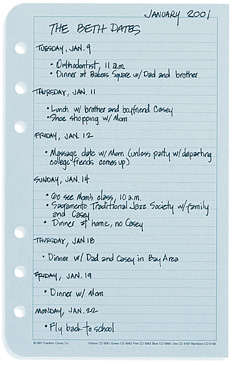 JANUARY 2001
THE BETH DATES
TUESDAY, JAN. 9
• Orthodontist, 11 a.m.
• Dinner at Bakers Square w/ Dad and brother
THURSDAY, JAN. 11
• Lunch w/ brother and boyfriend Casey
• Shoe shopping w/ Mom
FRIDAY, JAN. 12
• Massage date w/ Mom (unless party w/ departing
college friends comes up)
SUNDAY, JAN. 14
• Go see Mom's class, 10 a.m.
• Sacramento Traditional Jazz Society w/ family
and Casey
• Dinner at home, no Casey
THURSDAY, JAN 18
• Dinner w/ Dad and Casey in Bay Area
FRIDAY, JAN. 19
• Dinner w/ Mom
MONDAY, JAN. 22
• Fly back to school